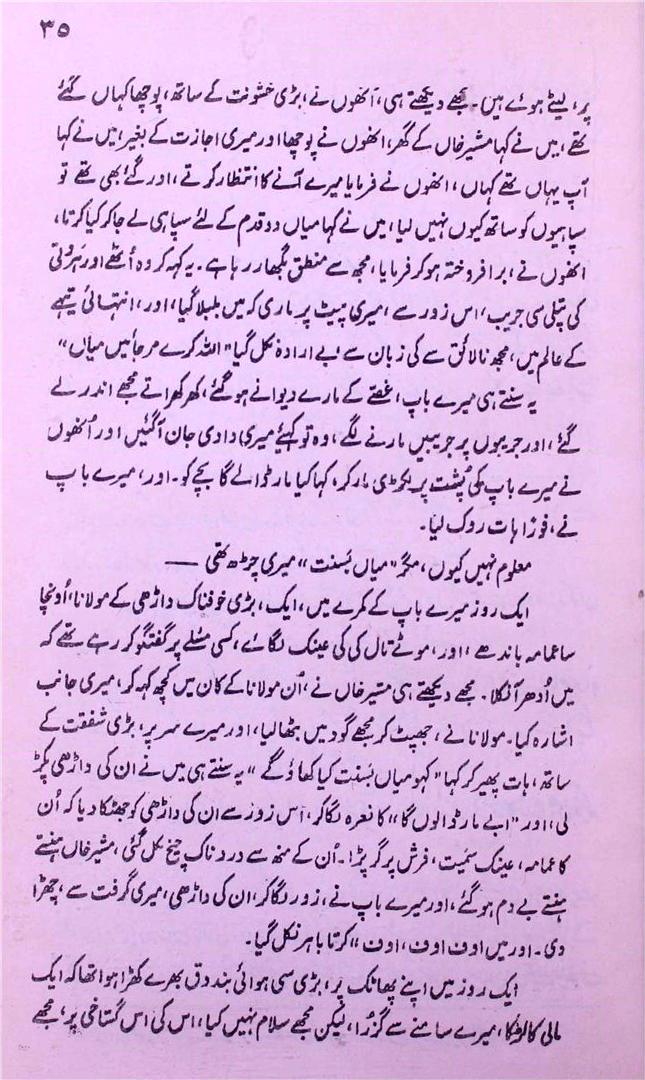 ۳۵
پر، لیٹے ہوئے ہیں۔ مجھے دیکھتے ہی، اُنھوں نے، بڑی خشونت کے ساتھ، پوچھا کہاں گئے
تھے، میں نے کہا مشیر خاں کے گھر، انھوں نے پوچھا اور میری اجازت کے بغیر، میں نے کہا
آپ یہاں تھے کہاں، انھوں نے فرمایا میرے آنے کا انتظار کرتے، اور گئے بھی تھے تو
سپاہیوں کو ساتھ کیوں نہیں لیا، میں نے کہا میاں دو قدم کے لئے سپاہی لے جا کر کیا کرتا،
انھوں نے، برافروختہ ہو کر فرمایا، مجھ سے منطق بگھار رہا ہے۔ یہ کہہ کر وہ اُٹھے اور ہَروتی
کی پتلی سی جریب، اس زور سے، میری پیٹ پر ماری کہ میں بلبلا گیا، اور، انتہائی تیہے
کے عالم میں، مجھ نالائق سے کی زبان سے بے ارادہ نکل گیا "اللہ کرے مرجائیں میاں"
یہ سنتے ہی میرے باپ، غصّے کے مارے دیوانے ہو گئے، کھرکھراتے مجھے اندر لے
گئے، اور جریبوں پر جریبیں مارنے لگے، وہ تو کہئے میری دادی جان آگئیں اور اُنھوں
نے میرے باپ کی پُشت پر لکڑی مار کر، کہا کیا مار ڈالے گا بچے کو۔ اور، میرے باپ
نے، فوراً ہات روک لیا۔
معلوم نہیں کیوں، مگر "میاں بَسنت" میری چڑھ تھی ——
ایک روز میرے باپ کے کمرے میں، ایک، بڑی خوفناک داڑھی کے مولانا، اُونچا
سا عمامہ باندھے، اور، موٹے تال کی کی عینک لگائے، کسی مسئلے پر گفتگو کر رہے تھے کہ
میں اُدھر آنکلا۔ مجھے دیکھتے ہی مشیر خاں نے، اُن مولانا کے کان میں کچھ کہہ کر، میری جانب
اشارہ کیا۔ مولانا نے، جھپٹ کر مجھے گود میں بٹھا لیا، اور میرے سر پر، بڑی شفقت کے
ساتھ، ہات پھیر کر کہا "کہو میاں بَسنت کیا کھاؤ گے" یہ سنتے ہی میں نے ان کی داڑھی پکڑ
لی، اور "ابے مار ڈالوں گا" کا نعرہ لگا کر، اُس زور سے ان کی داڑھی کو جھٹکا دیا کہ اُن
کا عمامہ، عینک سمیت، فرش پر گر پڑا۔ اُن کے منھ سے دردناک چیخ نکل گئی، مشیر خاں ہنستے
ہنستے بے دم ہو گئے، اور میرے باپ نے، زور لگا کر، ان کی داڑھی، میری گرفت سے، چھڑا
دی۔ اور میں اوف اوف، اوف" کرتا باہر نکل گیا۔
ایک روز میں اپنے پھاٹک پر، بڑی سی ہوائی بندوق بھرے کھڑا ہوا تھا کہ ایک
مالی کا لڑکا، میرے سامنے سے گزُرا، لیکن مجھے سلام نہیں کیا، اس کی اس گستاخی پر، مجھے